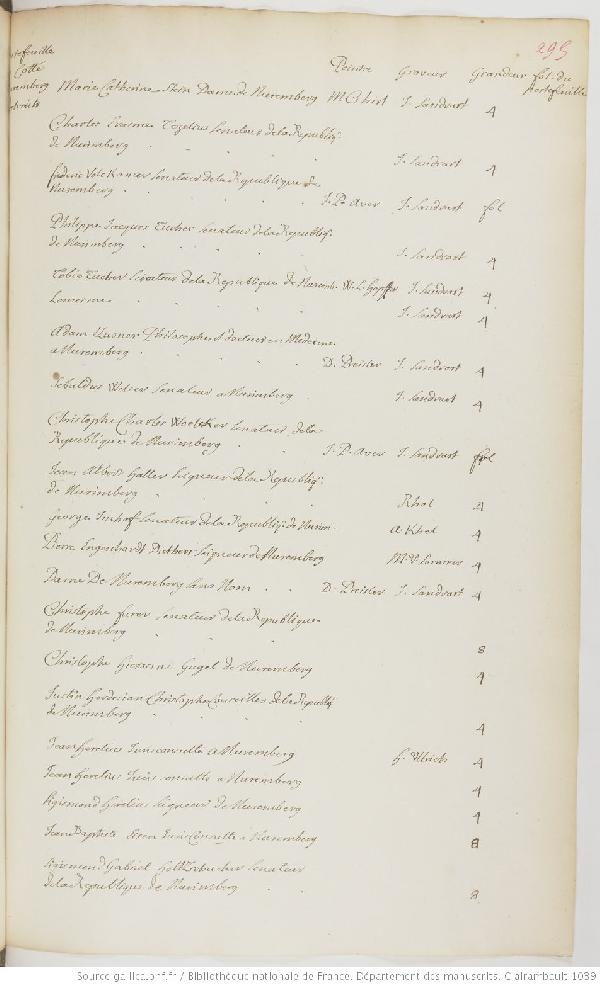 295
Peintre Graveur Grandeur fol. du
Cotté portefeuille
Marie Catherine Stern Dame de Nuremberg J. Sandrart 4
Charles Erasme Tezelius Senateur de la Republiq.
de Nuremberg J. Sandrart 4
Volckamer Senateur de la Republique de
Nuremberg J. P. Aver J. Sandrart fol
Philippe Jacques Tucher Senateur de la Republiq.
de Nuremberg J. Sandrart 4
Tobie Tucher Senateur de la Republique de Nuremb. J. Sandrart 4
Le mesme J. Sandrart 4
Adam Philosophe et docteur en Medecine
a Nuremberg D. Preisler J. Sandrart 4
Sebaldus Welser Senateur a Nuremberg J. Sandrart 4
Christophe Charles Woelcker Senateur de la
Republique de Nuremberg J. P. Aver J. Sandrart fol
Jean Albert Haller Seigneur de la Republiq.
de Nuremberg Khol 4
George Imhof Senateur de la Republiq. de Nurem. A Khol 4
Pierre Engelhardt Seigneur de Nuremberg 4
Dame De Nuremberg sans Nom D. Preisler J. Sandrart 4
Christophe furer Senateur de la Republique
de Nuremberg 8
Christophe Gugel de Nuremberg 4
Justin Christophe Conseiller de la Republiq
de Nuremberg 4
Jean Jurisconsulte a Nuremberg H. Ulrich 4
Jean Jurisconsulte a Nuremberg 4
Sigismond Seigneur de Nuremberg 4
Jean Baptiste Jurisconsulte a Nuremberg 8
Sigismond Gabriel Holtzschucher Senateur
de la Republique de Nuremberg 8
Source gallica.bnf.fr / Bibliothèque nationale de France. Département des manuscrits. Clairambault 1039